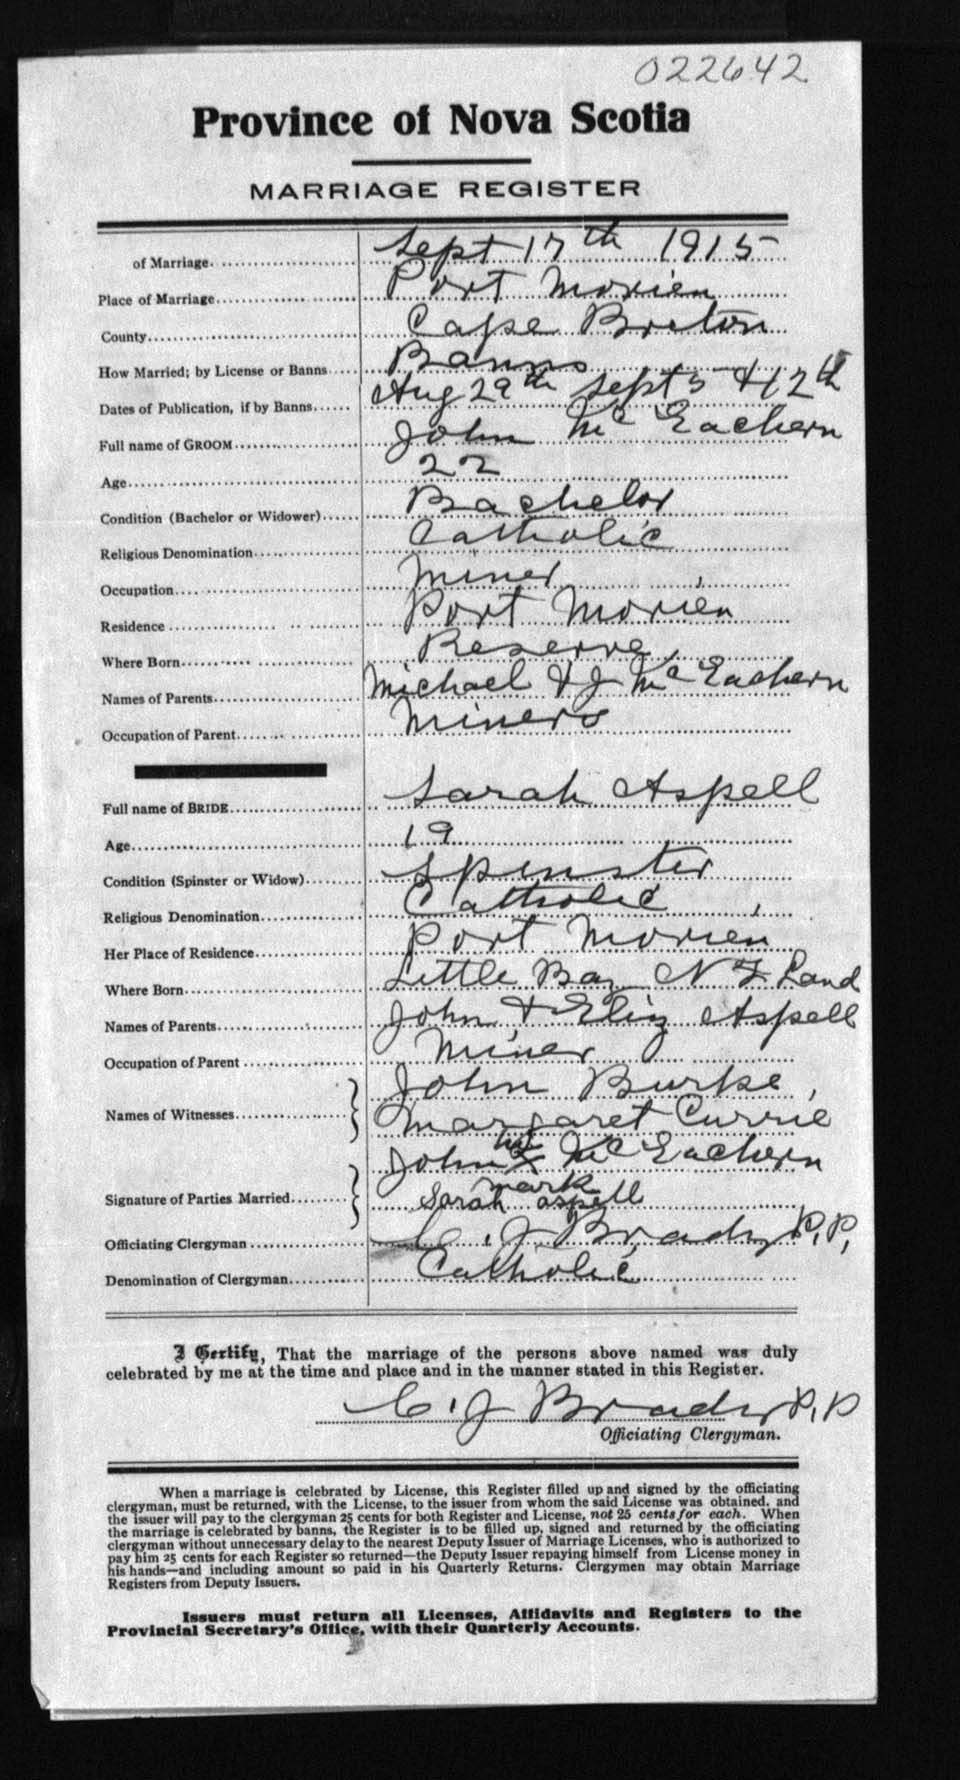 022642
Province of Nova Scotia
MARRIAGE REGISTER
of Marriage Sept 17th 1915
Place of Marriage Port Morien
County Cape Breton
How Married; by License or Banns Banns
Dates of Publication, if by Banns Aug 29th Sept 5 & 12th
Full name of GROOM John McEachern
Age 22
Condition (Bachelor or Widower) Bachelor
Religious Denomination Catholic
Occupation Miner
Residence Port Morien
Where Born Reserve
Names of Parents Michael & J McEachern
Occupation of Parent Miners
Full name of BRIDE Sarah Aspell
Age 19
Condition (Spinster or Widow) Spinster
Religious Denomination Catholic
Her Place of Residence Port Morien
Where Born Little Bay NF Land
Names of Parents John & Eliz Aspell
Occupation of Parent Miner
Names of Witnesses John Burke
Margaret Currie
Signature of Parties Married John his X mark McEachern
Sarah aspell
Officiating Clergyman C. J Brady P.P,
Denomination of Clergyman Catholic
I Certify, That the marriage of the persons above named was duly
celebrated by me at the time and place and in the manner stated in this Register.
C. J Brady P.P
Officiating Clergyman.
When a marriage is celebrated by License, this Register filled up and signed by the officiating
clergyman, must be returned, with the License, to the issuer from whom the said License was obtained, and
the issuer will pay to the clergyman 25 cents for both Register and License, not 25 cents for each. When
the marriage is celebrated by banns, the Register is to be filled up, signed and returned by the officiating
clergyman without unnecessary delay to the nearest Deputy Issuer of Marriage Licenses, who is authorized to
pay him 25 cents for each Register so returned—the Deputy Issuer repaying himself from License money in
his hands—and including amount so paid in his Quarterly Returns. Clergymen may obtain Marriage
Registers from Deputy Issuers.
Issuers must return all Licenses, Affidavits and Registers to the
Provincial Secretary's Office, with their Quarterly Accounts.